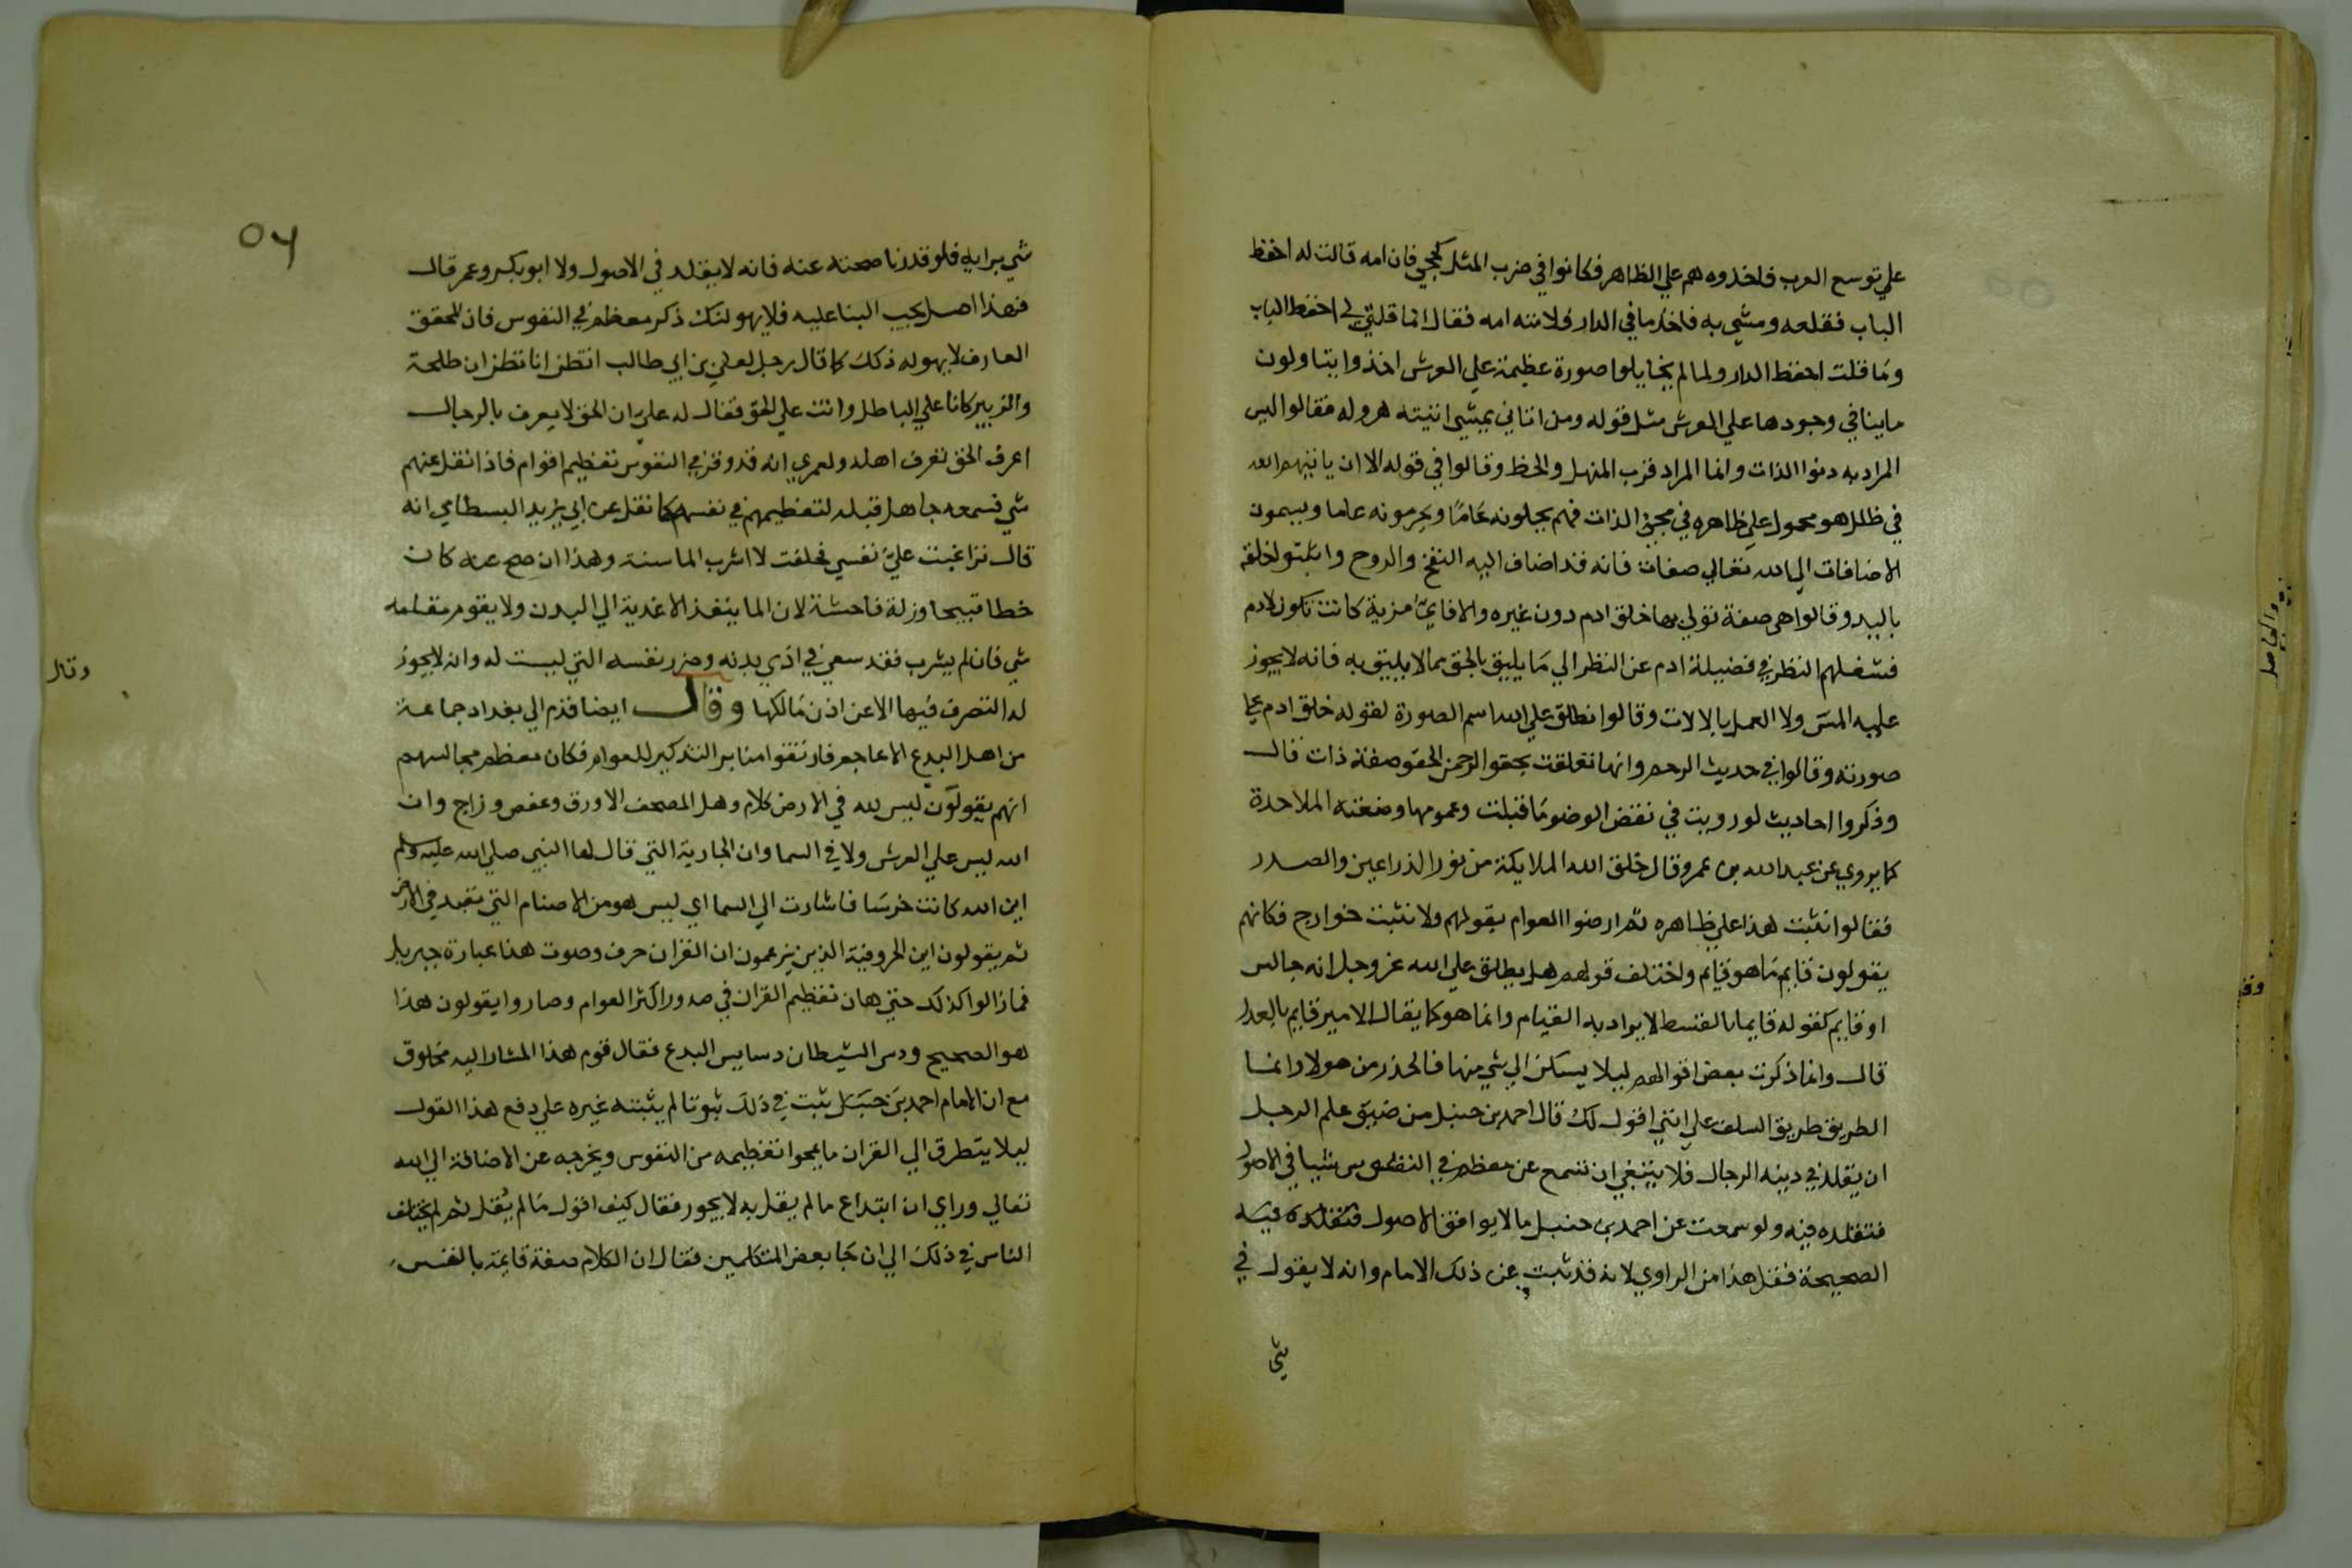 علي توسع العرب فاخذوه هم علي الظاهر فكانوا في ضرب المثل كجحي فان امه قالت له احفظ
الباب فقلعه ومشي به فاخذ ما في الدار فلامته امه فقال انما قلتي لي احفظ الباب
وما قلت احفظ الدار ولما لم يخايلوا صورة عظيمة علي العرش اخذوا يتاولون
ماينافي وجودها علي العرش مثل قوله ومن اتاني يمشي اتيته هروله فقالوا ليس
المراد به دنوا الذات وانما المراد قرب المنهل والحظ وقالوا في قوله الا ان ياتيهم الله
في ظلل هو محمول علي ظاهره في مجي الذات فهم يحلونه عاما ويحرمونه عاما ويسمون
الاضافات الي الله تعالي صفات فانه قد اضاف اليه النفخ والروح واثبتو لخلقه
باليد وقالوا هي صفة تولي بها خلق ادم دون غيره والا فاي مزية كانت تكون لادم
فشغلهم النظر في فضيلة ادم عن النظر الي ما يليق بالحق بما لا يليق به فانه لا يجوز
عليه المس ولا العمل بالالات وقالوا نطلق علي الله اسم الصورة لقوله خلق ادم علي
صورته وقالوا في حديث الرحم وانها تعلقت بحقو الرحمن الحقو صفة ذات قال
وذكروا احاديث لو رويت في نقض الوضو ما قبلت وعمومها وضعته الملاحدة
كما يروي عن عبد الله بن عمرو قال خلق الله الملايكة من نور الذراعين والصدر
فقالوا نثبت هذا علي ظاهره ثم ارضوا العوام بقولهم ولا نثبت خوارج فكانهم
يقولون قايم ما هو قايم واختلف قولهم هل يطلق علي الله عز وجل انه جالس
او قايم كقوله قايما بالقسط لا يراد به القيام وانما هو كما يقال الامير قايم بالعدل
قال وانما ذكرت بعض اقوالهم ليلا يسكن الي شي منها فالحذر من هولا وانما
الطريق طريق السلف علي انني اقول لك قال احمد بن حنبل من ضيق علم الرجل
ان يقلد في دينه الرجال فلا ينبغي ان تسمع عن معظم في النفوس شيا في الاصول
فتقلده فيه ولو سمعت عن احمد بن حنبل ما لا يوافق الاصول فتقلده فيه
الصحيحة فقل هذا من الراوي لانه قد ثبت عن ذلك الامام وانه لا يقول في
شي
٥٦
شي برايه فلو قدرنا صحته عنه فانه لا يقلد في الاصول ولا ابو بكر وعمر قال
فهذا اصل يجب البنا عليه فلا يهولنك ذكر معظم في النفوس فان المحقق
العارف لا يهوله ذكك كما قال رجل لعلي بن ابي طالب انتظن انا نظن ان طلحة
والزبير كانا علي الباطل وانت علي الحق فقال له علي ان الحق لا يعرف بالرجال
اعرف الحق تعرف اهله ولعمري انه قد وقر في النفوس تعظيم اقوام فاذا نقل عنهم
شي فسمعه جاهل قبله لتعظيمهم في نفسه كما نقل عن ابي يزيد البسطامي انه
قال تراغبت علي نفسي فحلفت لا اشرب الما سنة وهذا ان صح عنه كان
خطا قبيحا وزلة فاحشة لان الما ينفذ الاغذية الي البدن ولا يقوم مقامه
شي فان لم يشرب فقد سعي في اذي بدنه وضرر نفسه التي ليست له وانه لا يجوز
له التصرف فيها الا عن اذن مالكها وقال ايضا قدم الي بغداد جماعة
من اهل البدع الاعاجم فارتقوا منابر التذكير للعوام فكان معظم مجالسهم
انهم يقولون ليس لله في الارض كلام وهل المصحف الا ورق وعفص وزاج وان
الله ليس علي العرش ولا في السما وان الجارية التي قال لها النبي صلي الله عليه وسلم
اين الله كانت خرسا فاشارت الي السما اي ليس هو من الاصنام التي تعبد في الارض
ثم يقولون اين الحروفية الذين يزعمون ان القران حرف وصوت هذا عبارة جبريل
فما زالوا كذلك حتي هان تعظيم القران في صدور اكثر العوام وصاروا يقولون هذا
هو الصحيح ودس الشيطان دسايس البدع فقال قوم هذا المشار اليه مخلوق
مع ان الامام احمد بن حنبل يثبت في ذلك ثبوتا لم يثبته غيره علي دفع هذا القول
ليلا يتطرق الي القران ما يمحوا تعظيمه من النفوس ويخرجه عن الاضافة الي الله
تعالي وراي ان ابتداع ما لم يقل به لا يجوز فقال كيف اقول ما لم يقل ثم لم يختلف
الناس في ذلك الي ان جا بعض المتكلمين فقال ان الكلام صفة قايمة بالنفس
وقال
والحاصل